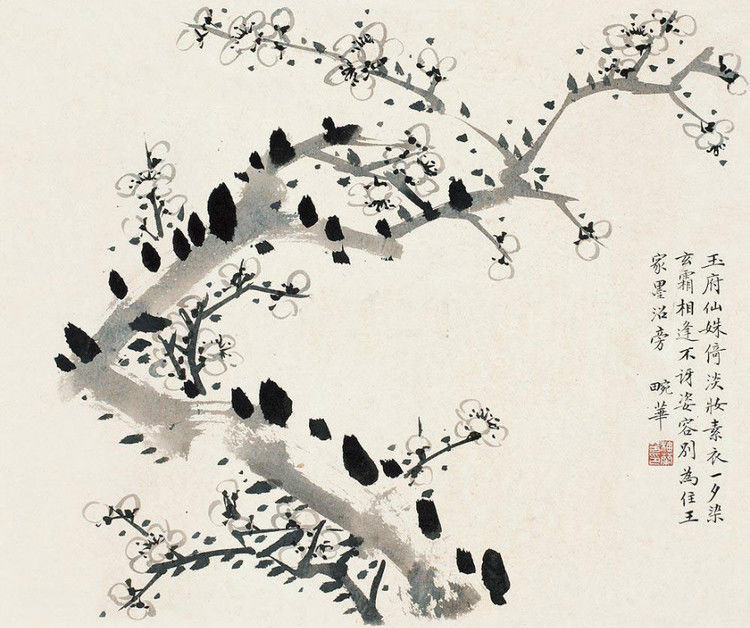 玉府仙姝倚淡妝素衣一夕染
玄霜相逢不訝姿容別為住王
家墨沼旁
畹華